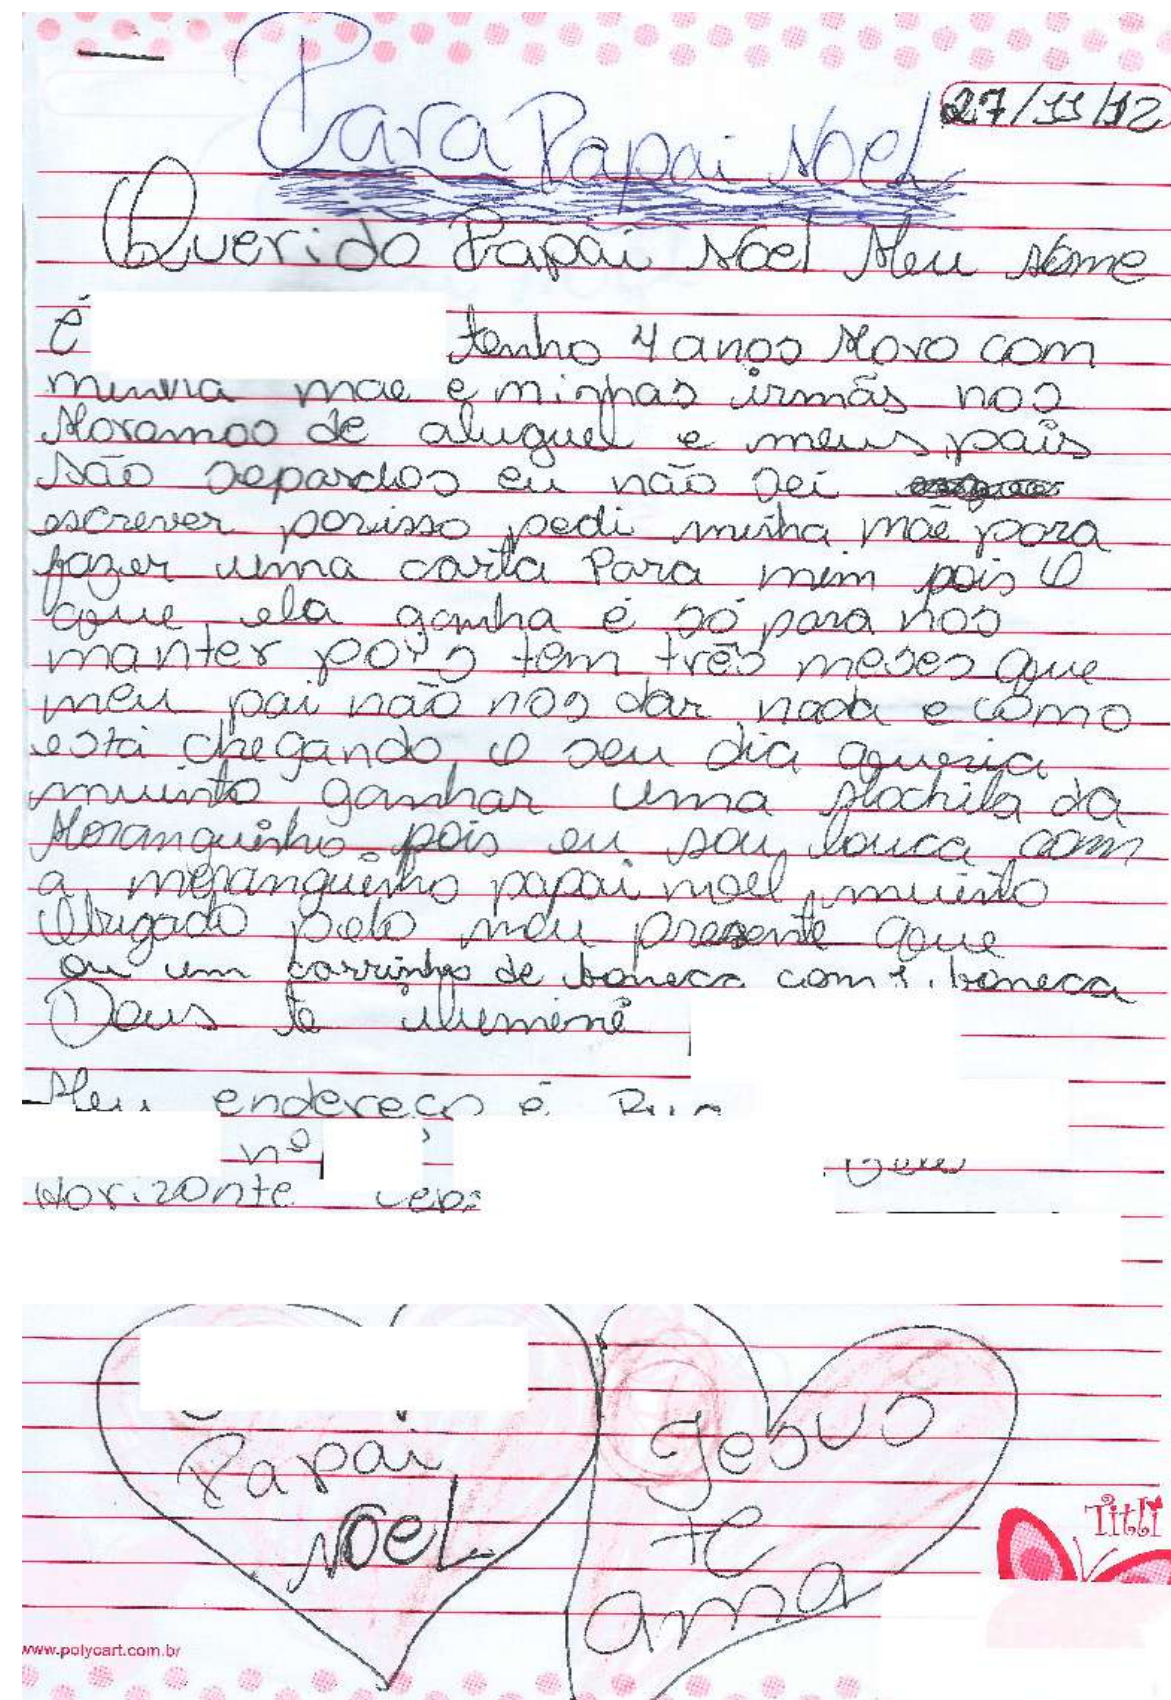 27/11/12
Para Papai Noel
Querido Papai Noel Meu Nome
é
tenho 4 anos Moro com
minha mãe e minhas irmãs nos
Moramos de aluguel e meus pais
são separdos eu não sei
escrever porisso pedi minha mãe para
fazer uma carta Para mim pois O
que ela ganha é só para nos
manter pois tem três meses que
meu pai não nos dar nada e como
está chegando o seu dia queria
muinto ganhar uma Mochila da
Moranguinho pois eu sou louca com
a moranguinho papai noel muinto
Obrigado pelo meu presente que
ou um carrinho de boneca com 1. boneca
Deus te ilumine
Meu endereço é Rua
nº
Horizonte cep:
Papai
NOEL
Jesus
te
ama
Titli
www.polycart.com.br